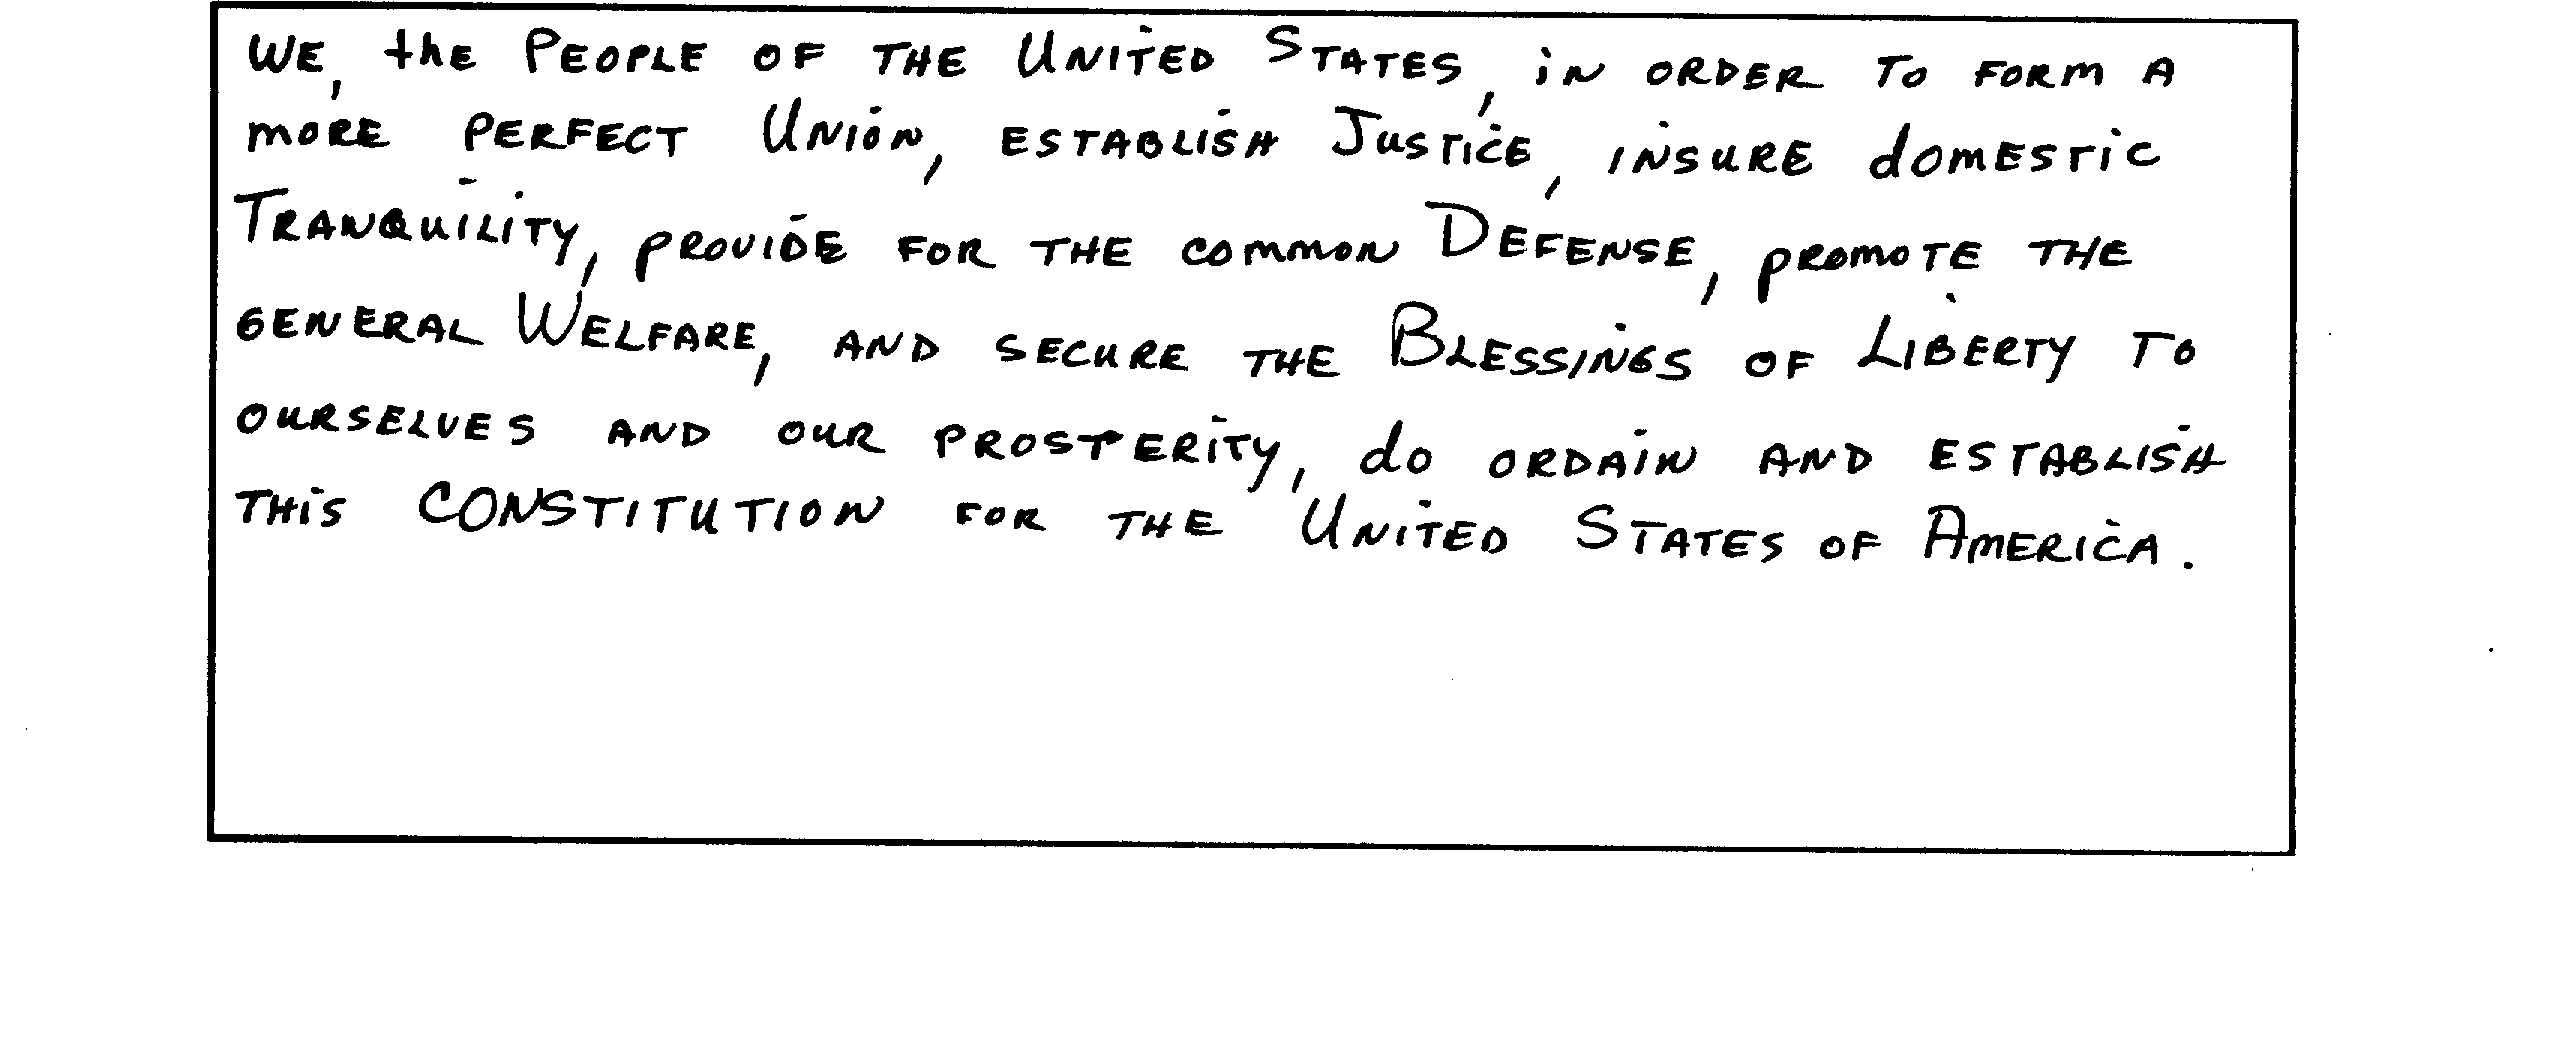 WE, the PEOPLE OF THE UNITED STATES, iN ORDER TO FORM A
MORE PERFECT UNiON, ESTABLiSH JUSTiCE, iNSURE dOMESTiC
TRANQUiLiTY, PROViDE FOR THE COMMON DEFENSE, PROMOTE THE
GENERAL WELFARE, AND SECURE THE BLESSiNGS OF LiBERTY TO
OURSELVES AND OUR PROSTERiTY, dO ORDAiN AND ESTABLiSH
THiS CONSTITUTION FOR THE UNiTED STATES OF AMERiCA.